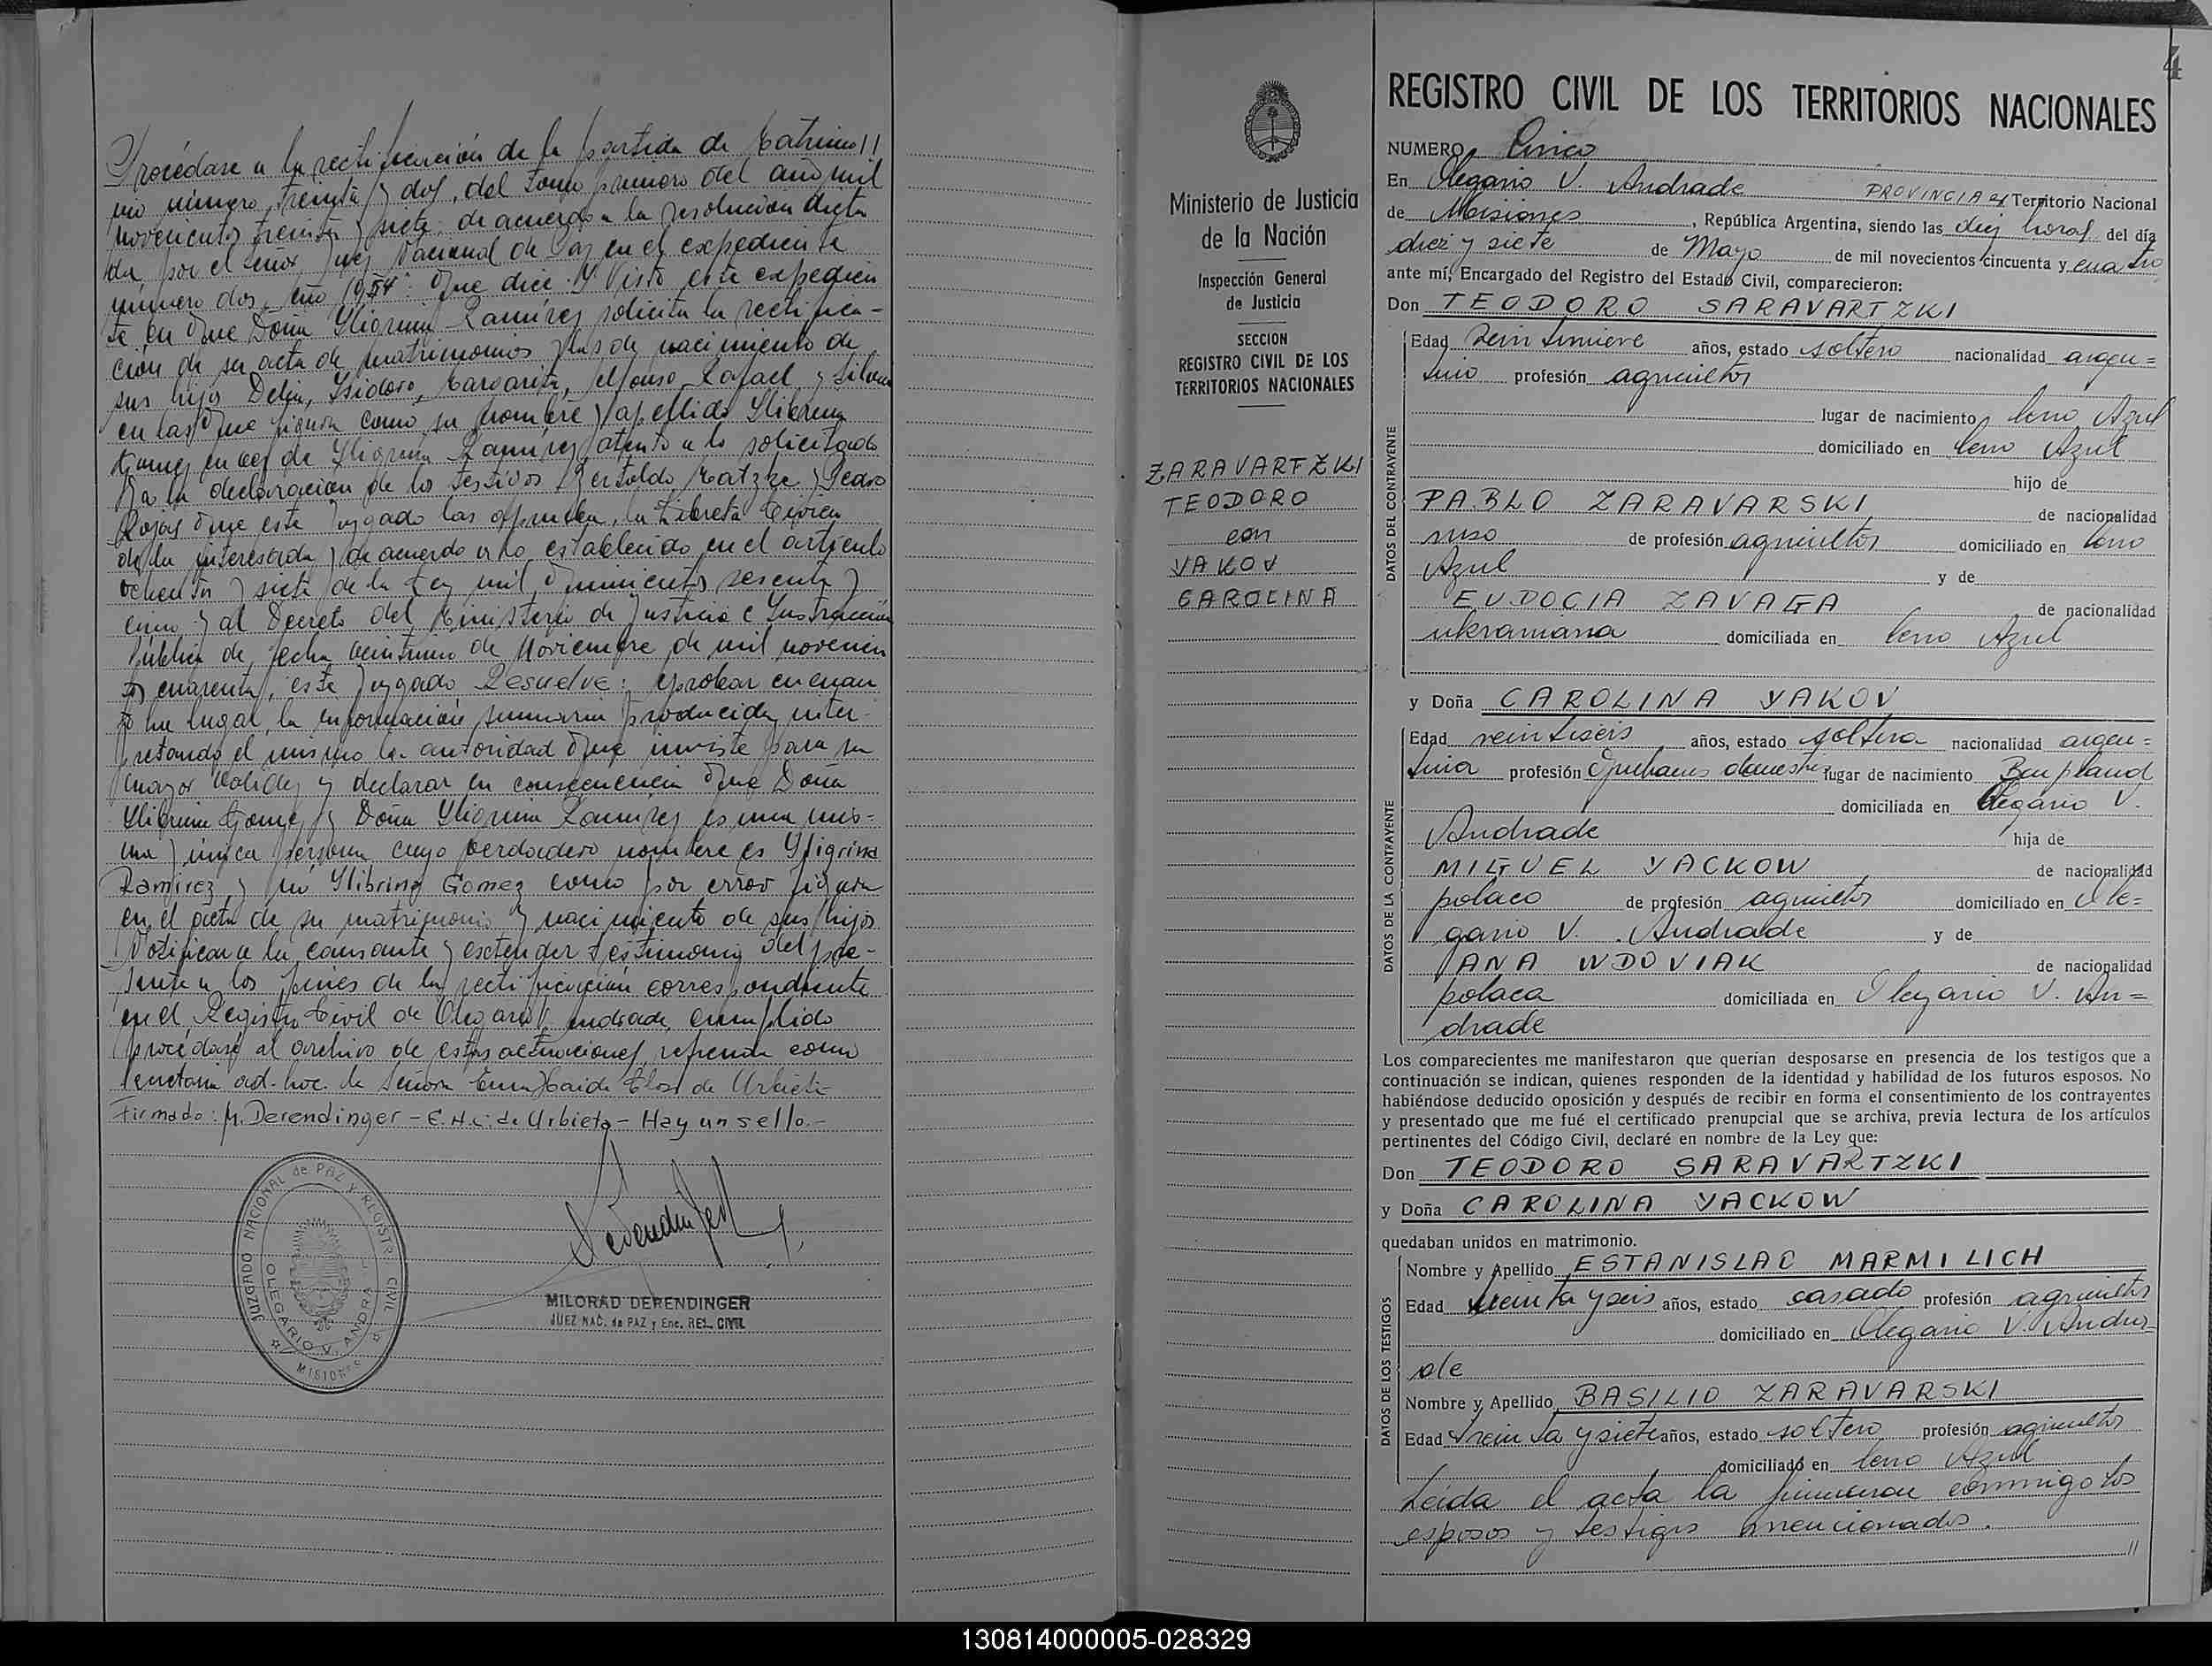 Procédase a la rectificación de la partida de Matrimo//
nio número treinta y dos, del tomo primero del año mil
novecientos treinta y siete, de acuerdo a la resolución dicta
da por el Señor Juez Nacional de Paz en el expediente
número dos, año 1954: Que dice: Y Visto este expedien
te en que Doña Ligrina Ramírez solicita la rectifica-
ción de su acta de matrimonio y las de nacimiento de
sus hijos Delia, Isidoro, Margarita, Alfonso, Rafael y
en las que figura como su nombre y apellido Librina
Gomez en vez de Ramírez atento a lo solicitado
a la declaración de los testigos Bertoldo Matzke y Pedro
Rojas que este Juzgado las aprueba, la Libreta Cívica
de la interesada y de acuerdo a lo establecido en el artículo
ochenta y siete de la Ley mil quinientos sesenta y
cinco y al Decreto del Ministerio de Justicia e Instrucción
Pública de fecha veintiuno de Noviembre de mil novecien
tos cuarenta, este Juzgado Resuelve: aprobar en cuan
to ha lugar, la información sumaria producida, inter-
pretando el mismo la autoridad que inviste para su
mayor validez y declarar en consecuencia que Doña
Gomez y Doña Ramirez es una mis-
ma y única persona cuyo verdadero nombre es
Ramirez y no Gomez como por error figura
en el acta de su matrimonio y nacimiento de sus hijos
Notificar a la causante y extender testimonio del pre-
sente a los fines de la rectificación correspondiente
en el Registro Civil de Olegario V. Andrade, cumplido
procédase al archivo de estas actuaciones, refrenda como
secretaria ad-hoc. la Señora de Urbieta
Firmado: M. Derendinger - E. H. C. de Urbieta - Hay un sello.-
JUZGADO NACIONAL de PAZ Y REGISTR. CIVIL
OLEGARIO V. ANDRADE
MISIONES
MILORAD DERENDINGER
JUEZ NAC. de PAZ y Enc. REG. CIVIL
4
Ministerio de Justicia
de la Nación
Inspección General
de Justicia
SECCION
REGISTRO CIVIL DE LOS
TERRITORIOS NACIONALES
ZARAVARTZKI
TEODORO
con
YAKOV
CAROLINA
REGISTRO CIVIL DE LOS TERRITORIOS NACIONALES
NUMERO Cinco
En Olegario V. Andrade PROVINCIA del Territorio Nacional
de Misiones, República Argentina, siendo las diez horas del día
diez y siete de Mayo de mil novecientos cincuenta y cuatro
ante mí, Encargado del Registro del Estado Civil, comparecieron:
Don TEODORO SARAVARTZKI
DATOS DEL CONTRAYENTE
Edad veintinueve años, estado soltero nacionalidad argen=
tino profesión agricultor
lugar de nacimiento Cerro Azul
domiciliado en Cerro Azul
hijo de
PABLO ZARAVARSKI de nacionalidad
ruso de profesión agricultor domiciliado en Cerro
Azul y de
EUDOCIA ZAVAGA de nacionalidad
ukraniana domiciliada en Cerro Azul
y Doña CAROLINA YAKOV
DATOS DE LA CONTRAYENTE
Edad veintiseis años, estado soltera nacionalidad argen=
tina profesión Quehaceres domesticos lugar de nacimiento Bonpland
domiciliada en Olegario V.
Andrade hija de
MIGUEL YACKOW de nacionalidad
polaco de profesión agricultor domiciliado en Ole=
gario V. Andrade y de
ANA WDOVIAK de nacionalidad
polaca domiciliada en Olegario V. An=
drade
Los comparecientes me manifestaron que querían desposarse en presencia de los testigos que a
continuación se indican, quienes responden de la identidad y habilidad de los futuros esposos. No
habiéndose deducido oposición y después de recibir en forma el consentimiento de los contrayentes
y presentado que me fué el certificado prenupcial que se archiva, previa lectura de los artículos
pertinentes del Código Civil, declaré en nombre de la Ley que:
Don TEODORO SARAVARTZKI
y Doña CAROLINA YACKOW
quedaban unidos en matrimonio.
DATOS DE LOS TESTIGOS
Nombre y Apellido ESTANISLAO MARMILICH
Edad treinta y seis años, estado casado profesión agricultor
domiciliado en Olegario V. Andra-
de
Nombre y Apellido BASILIO ZARAVARSKI
Edad treinta y siete años, estado soltero profesión agricultor
domiciliado en Cerro Azul
Leida el acta la firmaron conmigo los
esposos y testigos mencionados.
//
130814000005-028329